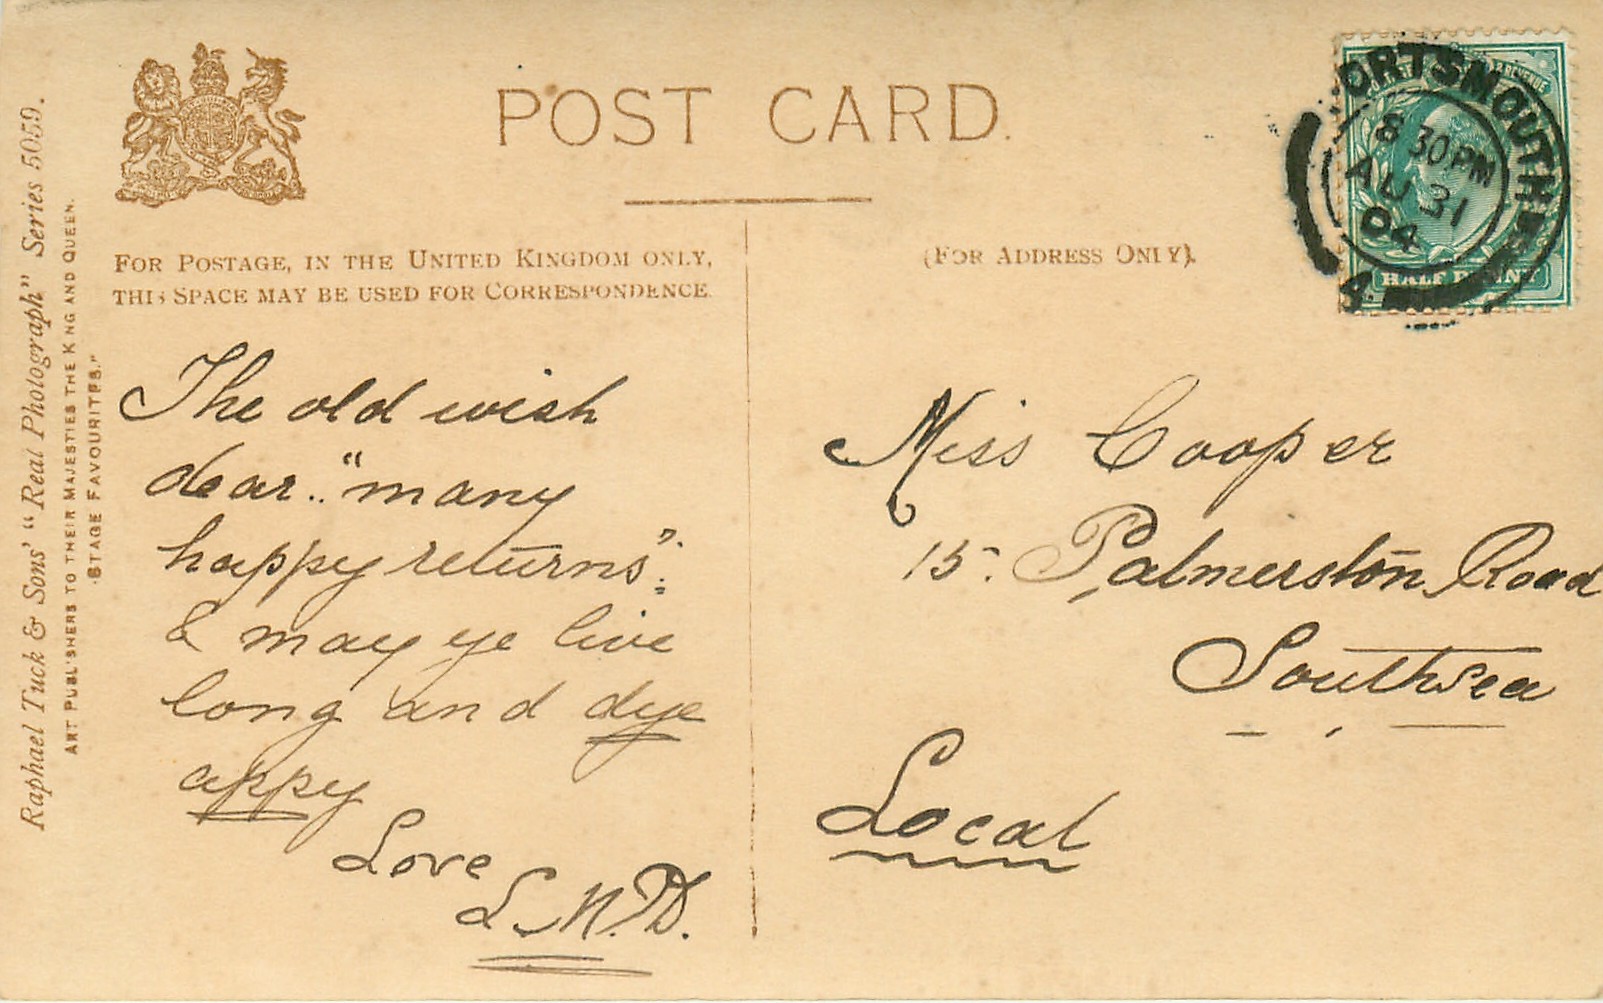 POST CARD.
FOR POSTAGE, IN THE UNITED KINGDOM ONLY,
THIS SPACE MAY BE USED FOR CORRESPONDENCE.
(FOR ADDRESS ONLY).
Raphael Tuck & Sons' "Real Photograph" Series 5059.
ART PUBLISHERS TO THEIR MAJESTIES THE KING AND QUEEN.
"STAGE FAVOURITES."
PORTSMOUTH
8 30 PM
AU 31
04
4.
& REVENUE
HALF PENNY
The old wish
dear.. "many
happy returns":
& may ye live
long and dye
appy
Love
L.N.D.
Miss Cooper
15. Palmerston Road
Southsea
Local